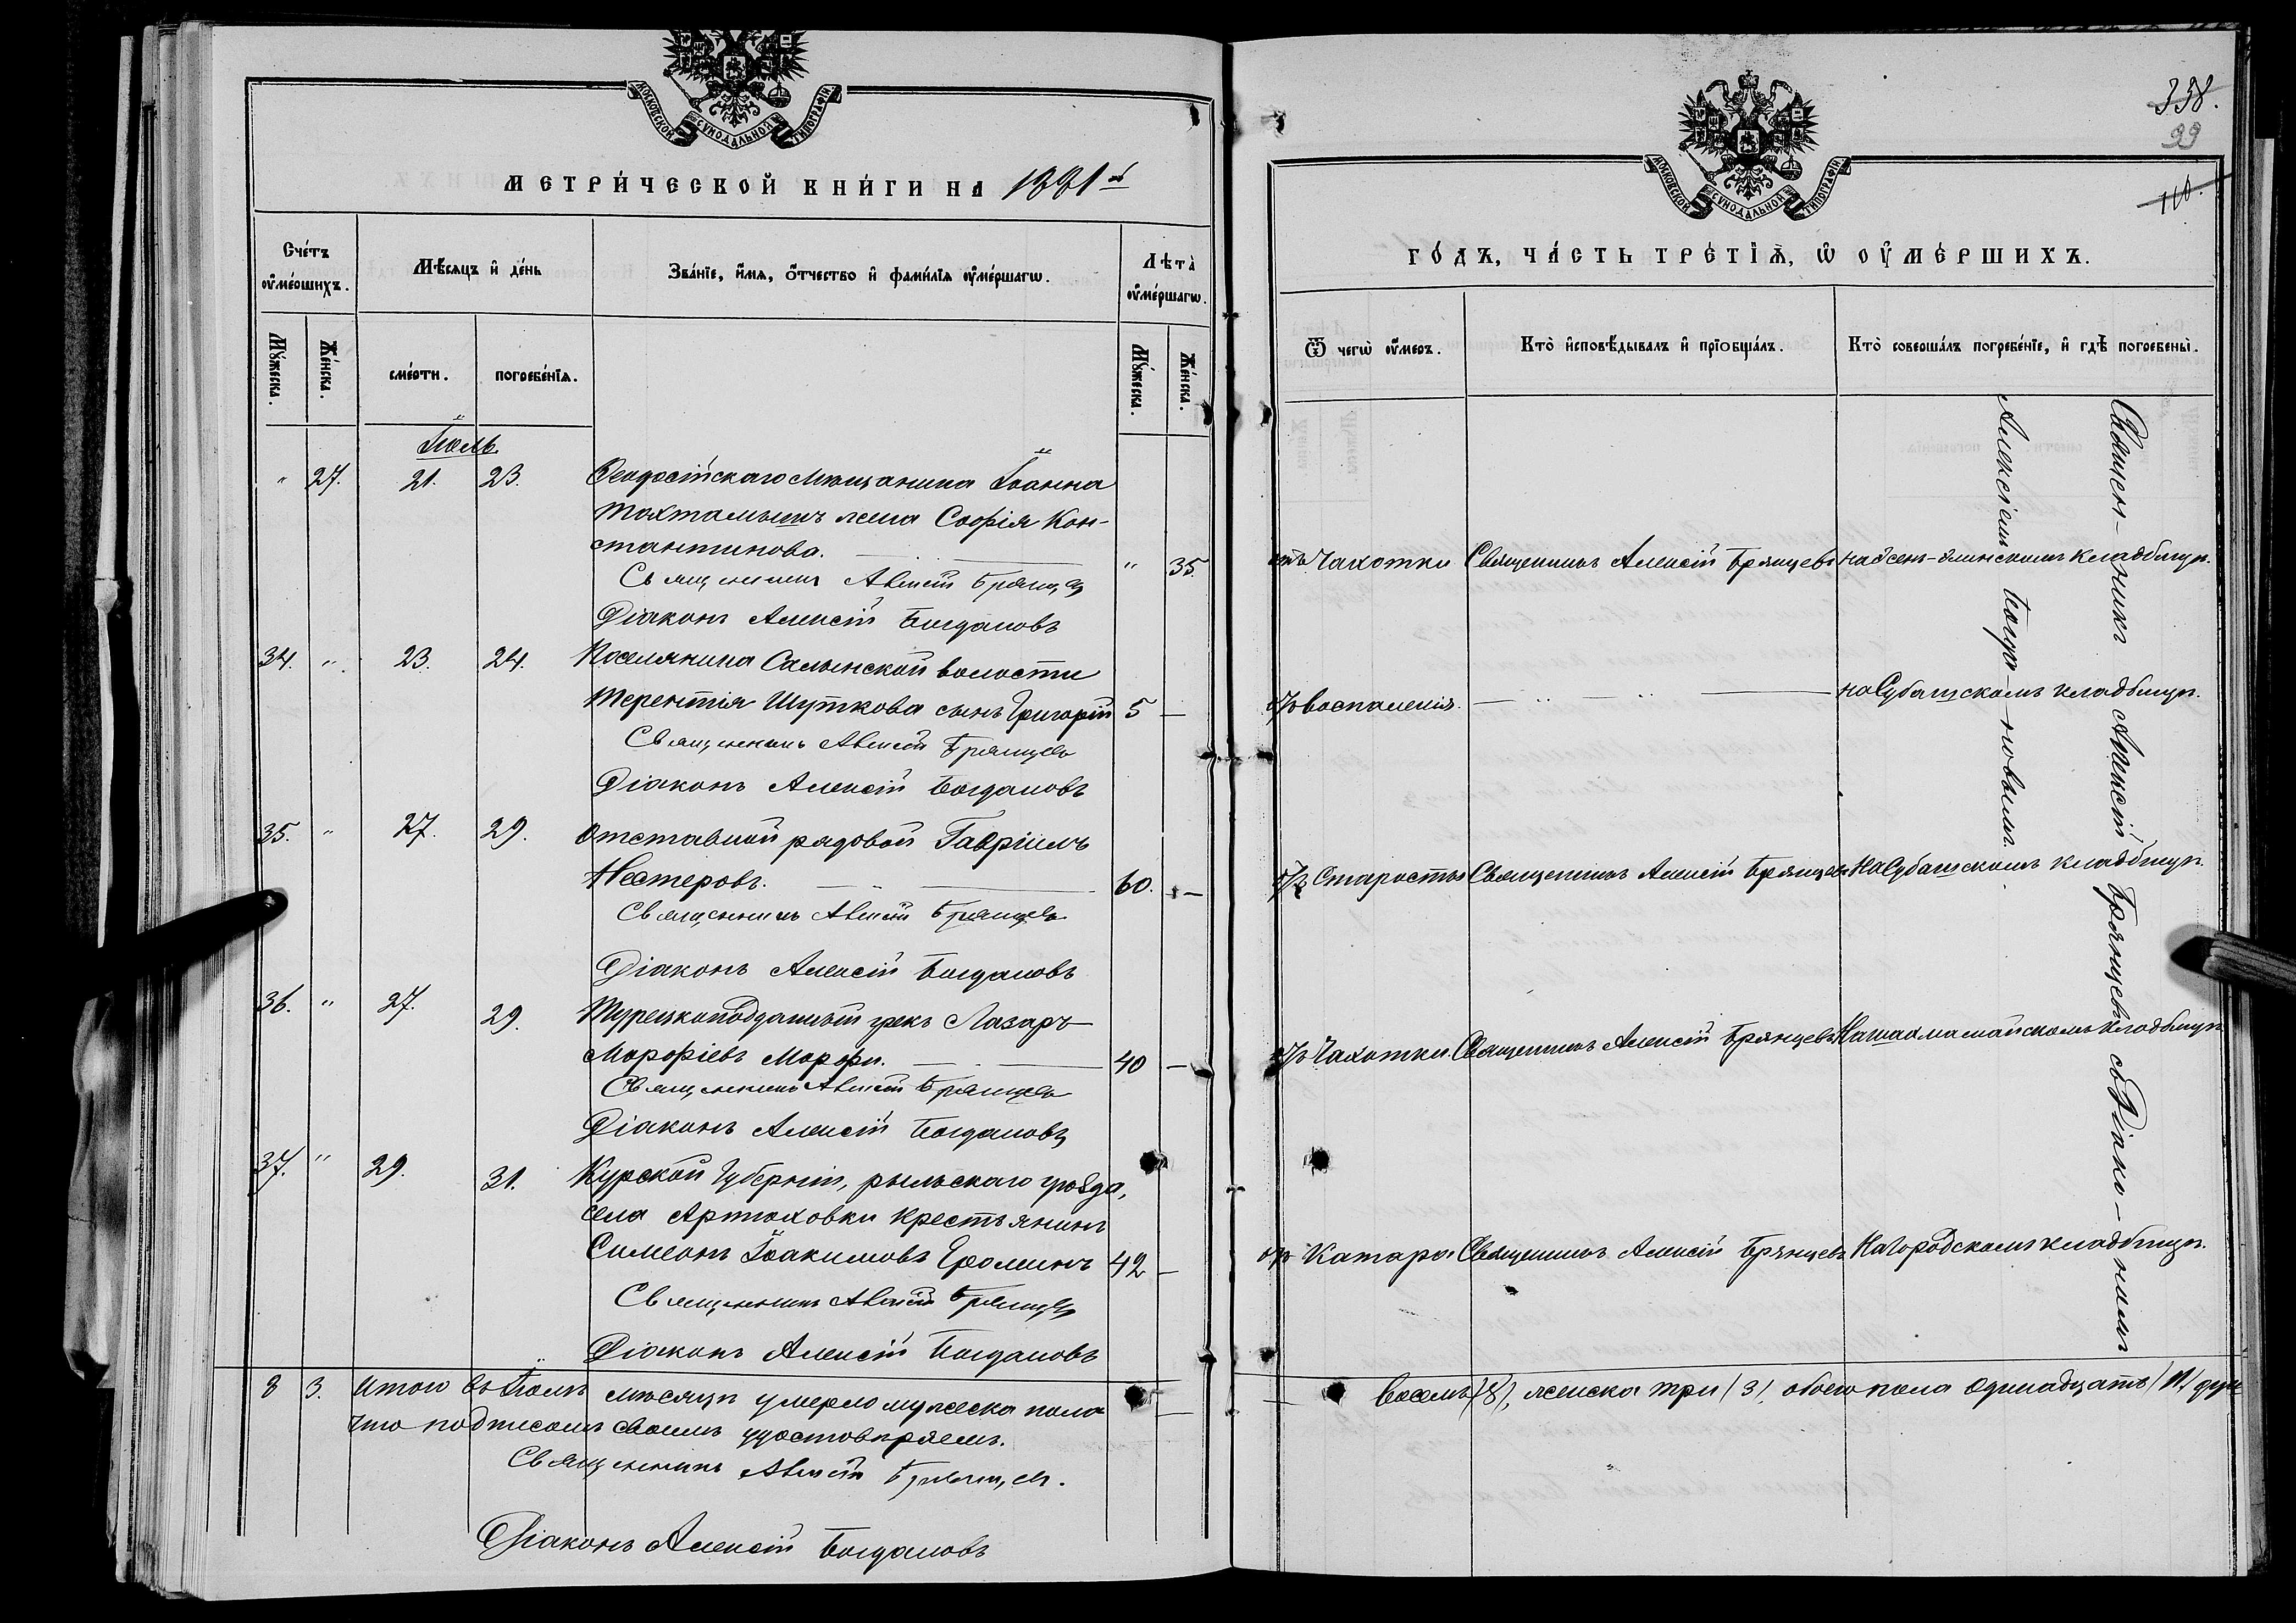 МОСКОВСКОЙ СѴНОДАЛЬНОЙ ТИПОГРАФІИ
МЕТРИ́ЧЕСКОЙ КНИ́ГИ НА 1881й
Сче́тъ оу҆ме́ршихъ.
Мѣ́сяцъ и҆ де́нь
Зва́нїе, и҆́мя, ѻ҆́тчество и҆ фами́лїя оу҆ме́ршагѡ.
Лѣ́та̀ оу҆ме́ршагѡ.
Мꙋ́жеска.
Же́нска.
сме́рти.
погребе́нїя.
Мꙋ́жеска.
Же́нска.
Іюль.
" 27. 21. 23. Ѳеодосійскаго мѣщанина Іоанна
Тохтамышъ жена Софія Кон-
стантинова. " 35.
Священникъ Алексій Брянцевъ
Діаконъ Алексій Богдановъ
34. " 23. 24. Поселянина Салынской волости
Терентія Шуткова сынъ Григорій 5 —
Священникъ Алексій Брянцевъ
Діаконъ Алексій Богдановъ
35. " 27. 29. Отставной рядовой Гавріилъ
Нестеровъ. 60. —
Священникъ Алексій Брянцевъ
Діаконъ Алексій Богдановъ
36. " 27. 29. Турецкоподданный грекъ Лазарь
Морфіевъ Морфи. 40 —
Священникъ Алексій Брянцевъ
Діаконъ Алексій Богдановъ
37. " 29. 31. Курской Губерніи, рыльскаго уѣзда,
села Артюховки крестьянинъ
Симеонъ Іоакимовъ Ероминъ 42 —
Священникъ Алексій Брянцевъ
Діаконъ Алексій Богдановъ
8 3. Итого въ Іюлѣ мѣсяцѣ умерло мужеска пола
что подписомъ своимъ удостовѣряемъ.
Священникъ Алексій Брянцевъ.
Діаконъ Алексій Богдановъ
358.
99
110.
МОСКОВСКОЙ СѴНОДАЛЬНОЙ ТИПОГРАФІИ
ГО́ДЪ, ЧА́СТЬ ТРЕ́ТЇѦ, Ѡ҆ ОУ҆МЕ́РШИХЪ.
Ѿ чегѡ̀ оу҆́меръ.
Кто̀ и҆сповѣ́дывалъ и҆ прїобща́лъ.
Кто̀ соверша́лъ погребе́нїе, и҆ гдѣ̀ погребены̀.
отъ Чахотки Священникъ Алексій Брянцевъ на Сеит-Элинскомъ кладбищѣ.
отъ воспаленія. — " — " — на Субашскомъ кладбищѣ.
отъ Старости Священникъ Алексій Брянцевъ На Субашскомъ кладбищѣ.
отъ Чахотки Священникъ Алексій Брянцевъ На шахмамайскомъ кладбищѣ
отъ Катара Священникъ Алексій Брянцевъ На городскомъ кладбищѣ.
Священ-никъ Алексій Брянцевъ съ Діако-номъ
Алексіемъ Богда-новымъ.
восемь (8), женска три (3), обоего пола одинадцать (11) душъ